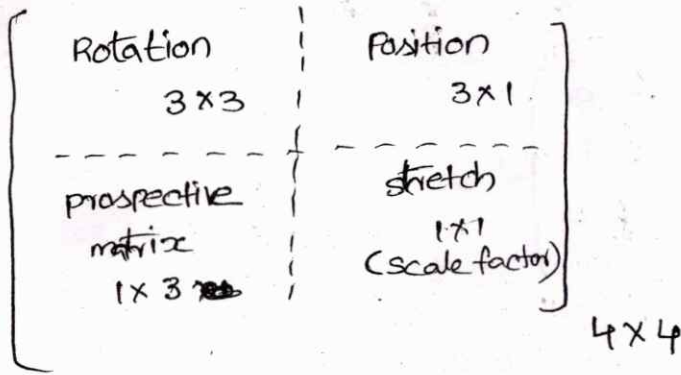 Rotation
3 × 3
Position
3 × 1
prospective
matrix
1 × 3
stretch
1×1
(scale factor)
4 × 4